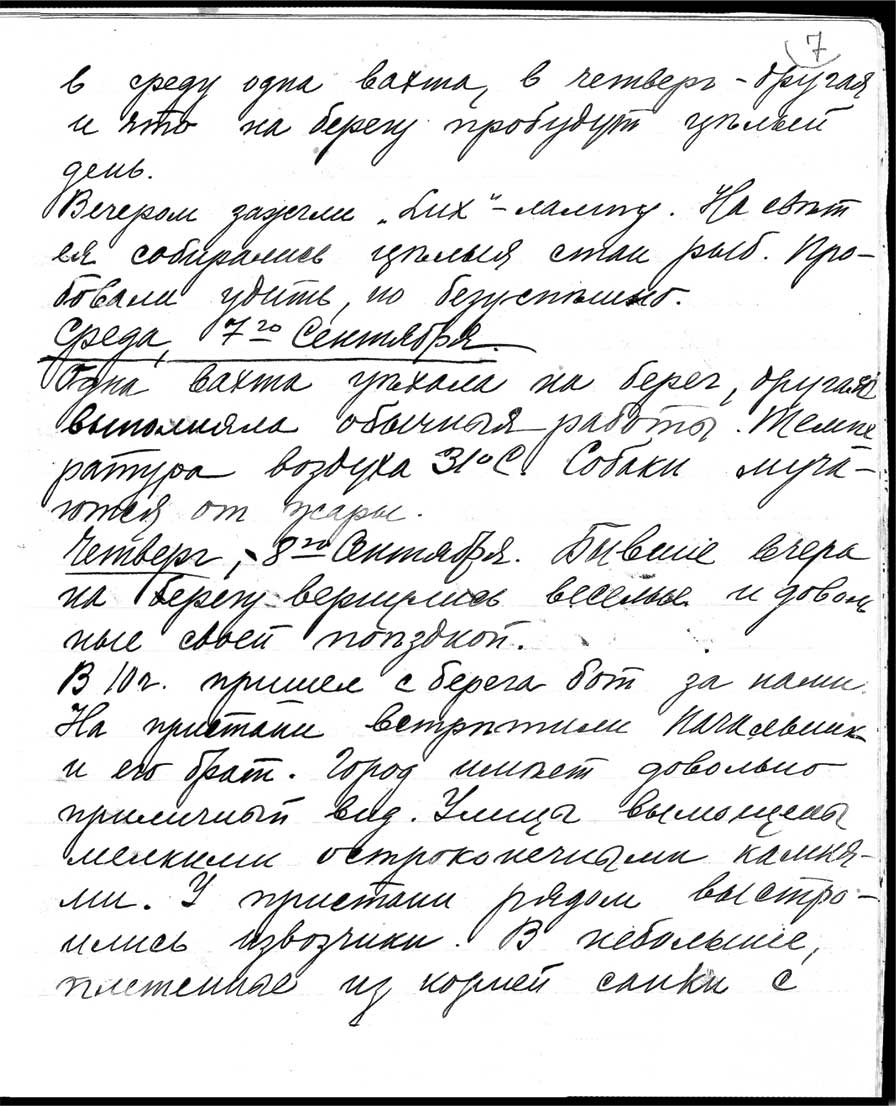 7
в среду одна вахта, в четверг – другая
и что на берегу пробудут цѣлый
день.
Вечером зажгли „Lux“ – лампу. На свѣт
ея собирались цѣлыя стаи рыб. Про-
бовали удить, но безуспѣшно.
Среда, 7го Сентября.
Одна вахта уѣхала на берег, другая
выполняла обычныя работы. Темпе
ратура воздуха 31°С. Собаки муча-
ются от жары.
Четверг, – 8го Сентября. Бывшие вчера
на берегу вернулись веселые и доволь
ные своей поѣздкой.
В 10 г. пришел с берега бот за нами.
На пристани встрѣтили Начальник
и его брат. Город имѣет довольно
приличный вид. Улицы вымощены
мелкими остроконечными камня-
ми. У пристани рядом выстро-
ились извозчики. В небольшие,
плетенные из корней санки с